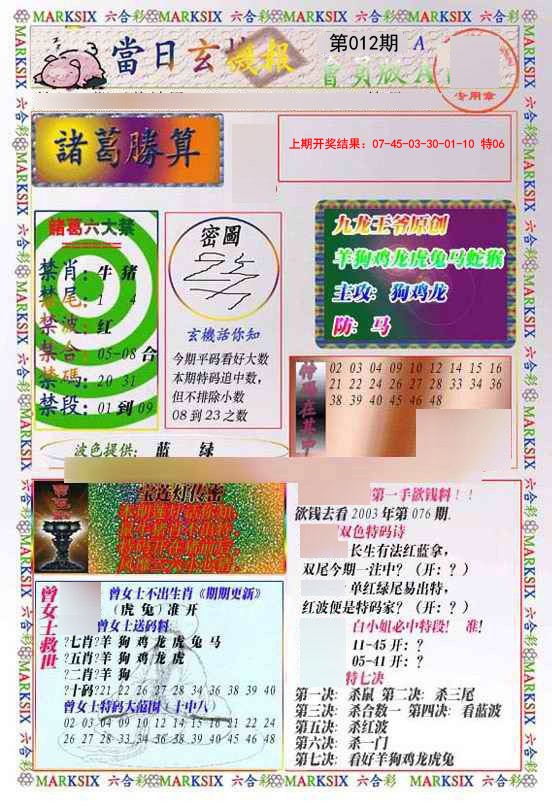 MARKSIX 六合彩 MARKSIX 六合彩 MARKSIX 六合彩 MARKSIX 六合彩
當日玄機報
第012期 A
會員版A
专用章
諸葛勝算
上期开奖结果：07-45-03-30-01-10 特06
諸葛六大禁
禁肖：牛 猪
禁尾：1 4
禁波：红
禁合：05-08 合
禁碼：20 31
禁段：01 到 09
密圖
玄機話你知
今期平码看好大数
本期特码追中数，
但不排除小数
08 到 23 之数
九龙王爷原创
羊狗鸡龙虎兔马蛇猴
主攻：狗鸡龙
防：马
02 03 04 09 10 12 14 15 16
21 22 24 26 27 28 33 34 36
38 39 40 45 46 48
波色提供： 蓝 绿
宝莲灯传密
第一手欲钱料！！
欲钱去看 2003 年第 076 期.
双色特码诗
长生有法红蓝拿，
双尾今期一注中？（开：？）
单红绿尾易出特，
红波便是特码家？（开：？）
白小姐必中特段！ 准！
11-45 开：？
05-41 开：？
特七决
第一决：杀鼠 第二决：杀三尾
第三决：杀合数一 第四决：看蓝波
第五决：杀红波
第六决：杀一门
第七决：看好羊狗鸡龙虎兔
曾女士救世
曾女士不出生肖《期期更新》
（虎 兔）准 开
曾女士送码料
?七肖?羊 狗 鸡 龙 虎 兔 马
?五肖?羊 狗 鸡 龙 虎
?二肖?羊 狗
?十码?21 22 26 27 28 34 36 38 39 40
曾女士特码大范围（十中八）
02 03 04 09 10 12 14 15 16 21 22 24
26 27 28 33 34 36 38 39 40 45 46 48
MARKSIX 六合彩 MARKSIX 六合彩 MARKSIX 六合彩 MARKSIX 六合彩